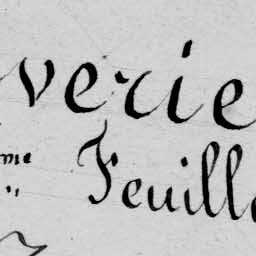 verie
me Feuille
"